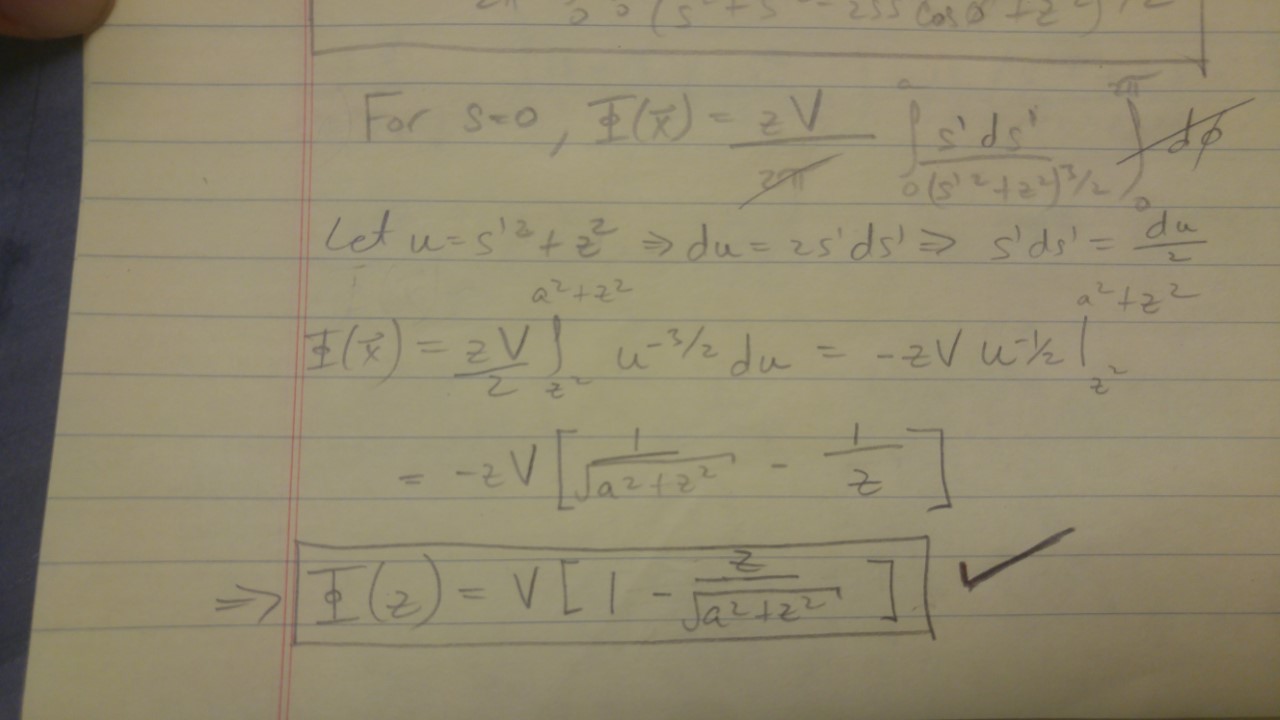 (s² + s'² - 2ss' cosφ + z²)^3/2
For s=0, Φ(x⃗) = zV/2π ∫₀^a s'ds'/(s'² + z²)^3/2 ∫₀^2π dφ
Let u = s'² + z² ⇒ du = 2s'ds' ⇒ s'ds' = du/2
Φ(x⃗) = zV/2 ∫_z²^a²+z² u^-3/2 du = -zV u^-1/2 |_z²^a²+z²
= -zV [ 1/√(a²+z²) - 1/z ]
⇒ Φ(z) = V [ 1 - z/√(a²+z²) ] ✓